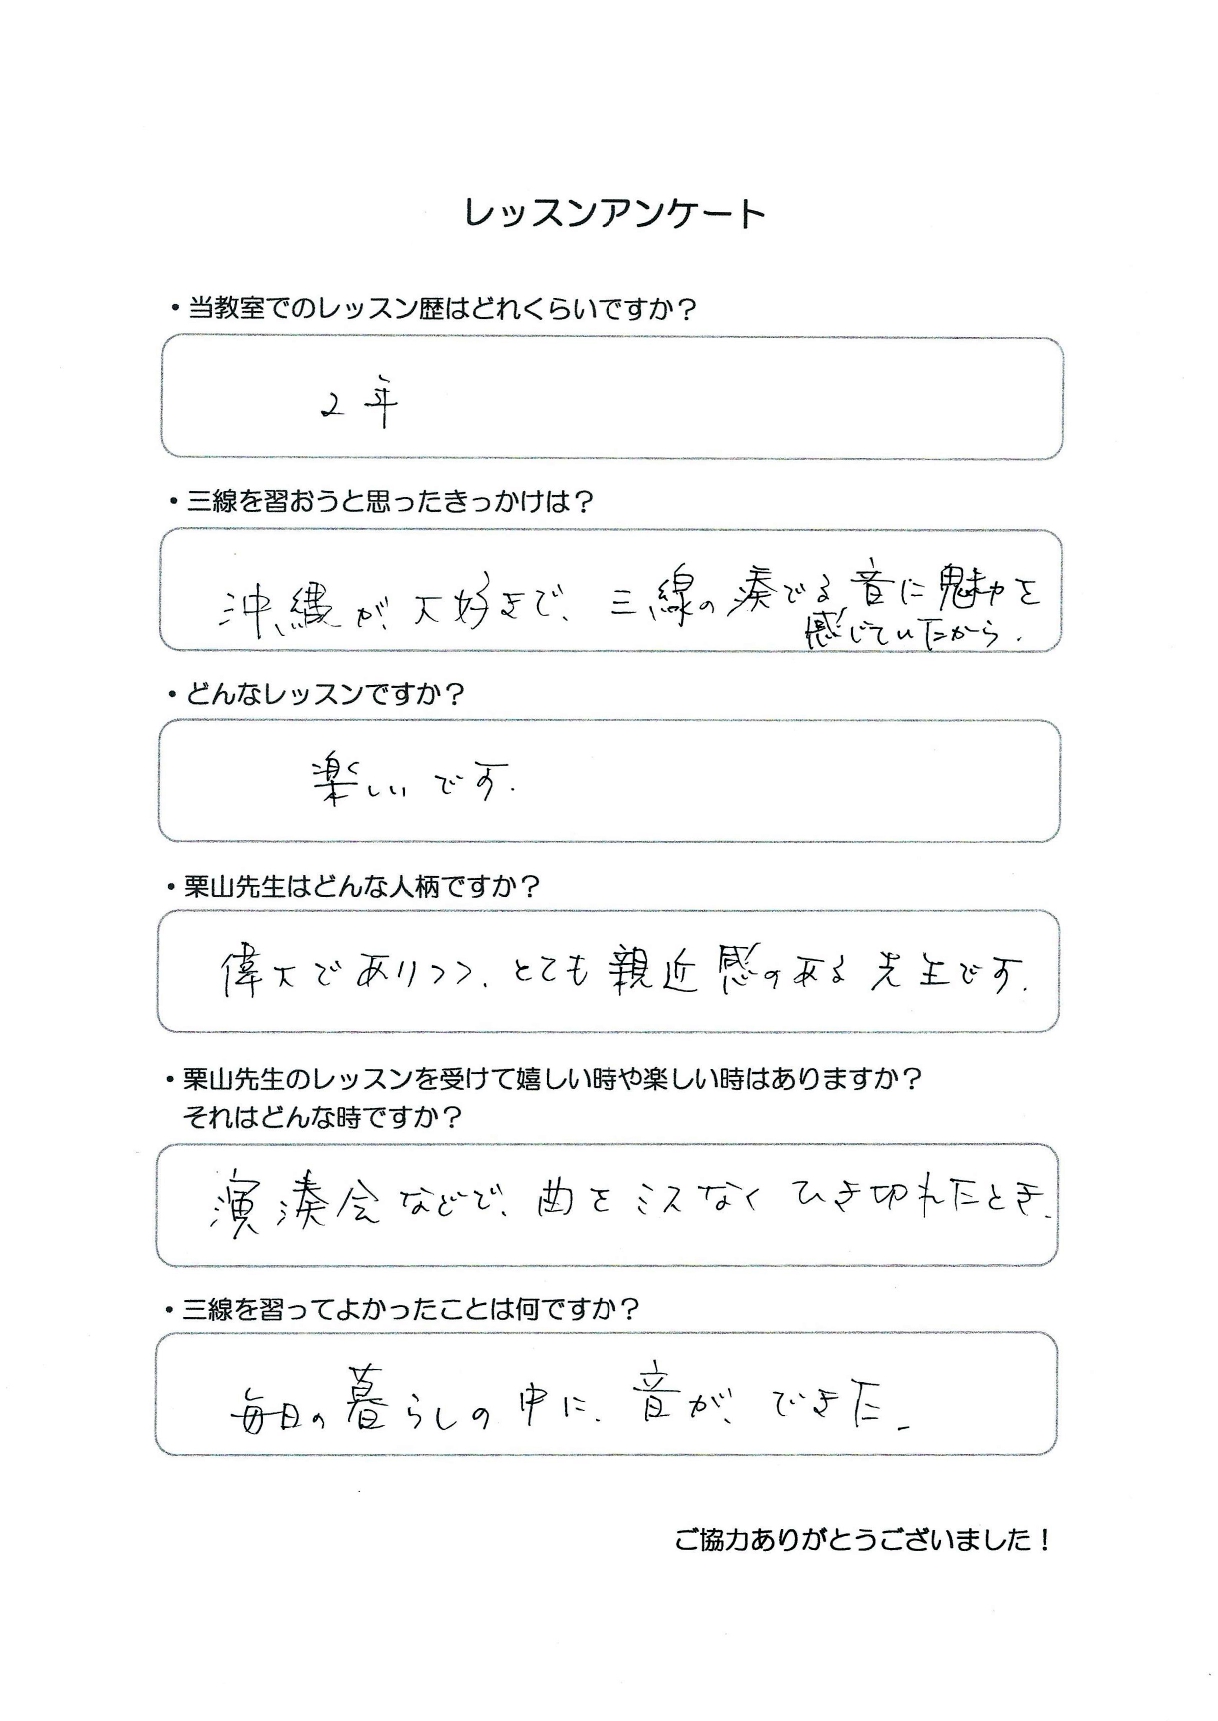 レッスンアンケート
・当教室でのレッスン歴はどれくらいですか？
2年
・三線を習おうと思ったきっかけは？
沖縄が大好きで、三線の奏でる音に魅力を
感じていたから.
・どんなレッスンですか？
楽しいです.
・栗山先生はどんな人柄ですか？
偉大でありつつ、とても親近感のある先生です.
・栗山先生のレッスンを受けて嬉しい時や楽しい時はありますか？
それはどんな時ですか？
演湊会などで、曲をミスなくひき切れたとき.
・三線を習ってよかったことは何ですか？
毎日の暮らしの中に、音が、できた.
ご協力ありがとうございました！